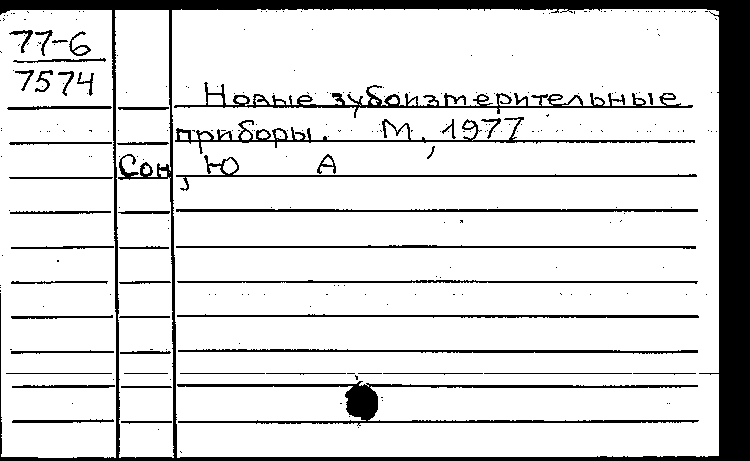 77-6
7574
Новые зубоизмерительные
приборы. М., 1977
Сон, Ю А